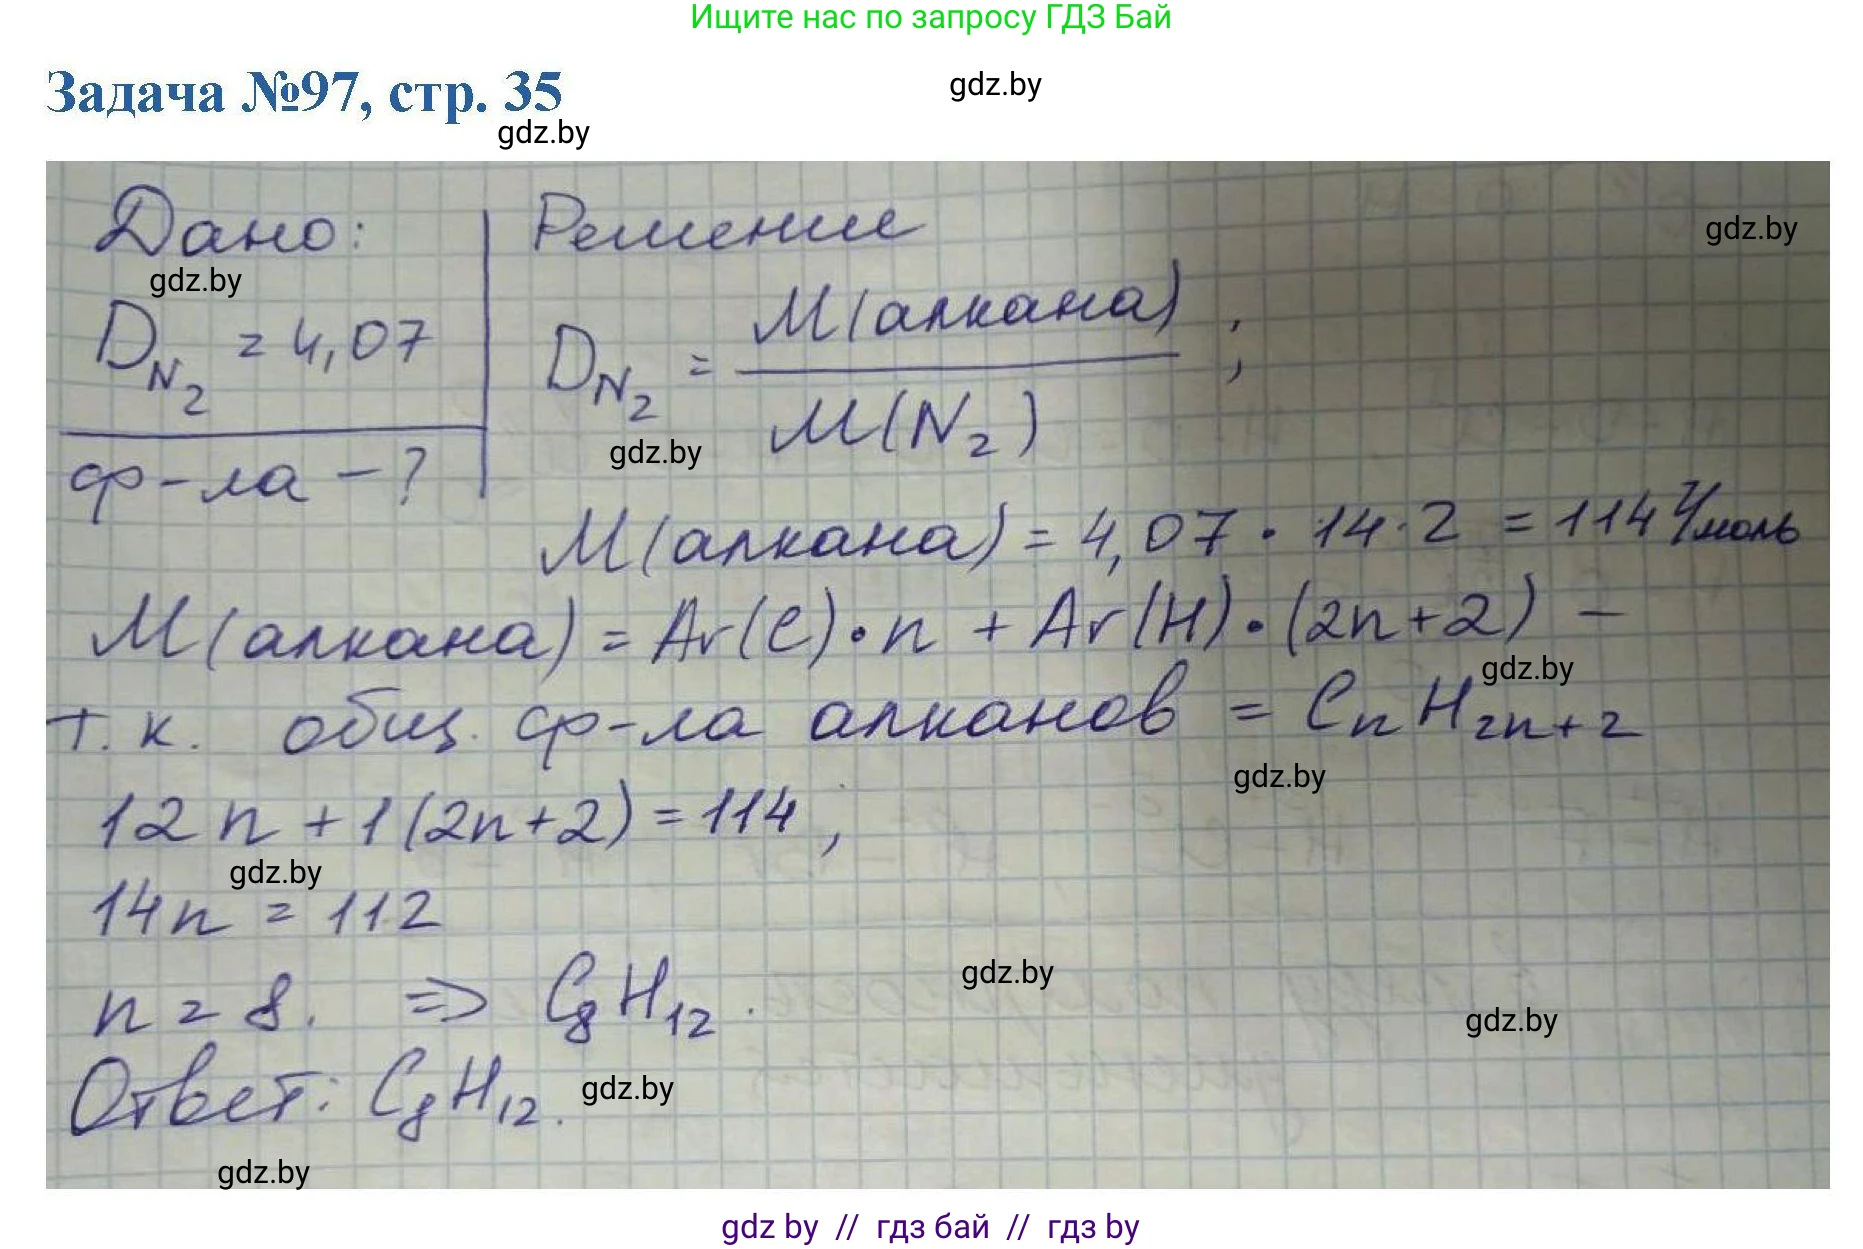 Ищите нас по запросу ГДЗ Бай
Задача №97, стр. 35
gdz.by
gdz.by
Дано:
Решение
gdz.by
gdz.by
D_N₂ = 4,07
D_N₂ = М(алкана) / М(N₂) ;
gdz.by
ф-ла - ?
М(алкана) = 4,07 · 14 · 2 = 114 г/моль
М(алкана) = Ar(C) · n + Ar(H) · (2n+2) –
gdz.by
т. к. общ. ф-ла алканов = CnH2n+2
gdz.by
12n + 1(2n+2) = 114 ;
gdz.by
14n = 112
gdz.by
n = 8. => C₈H₁₂.
gdz.by
Ответ: C₈H₁₂.
gdz.by
gdz.by
gdz by // гдз бай // гдз by